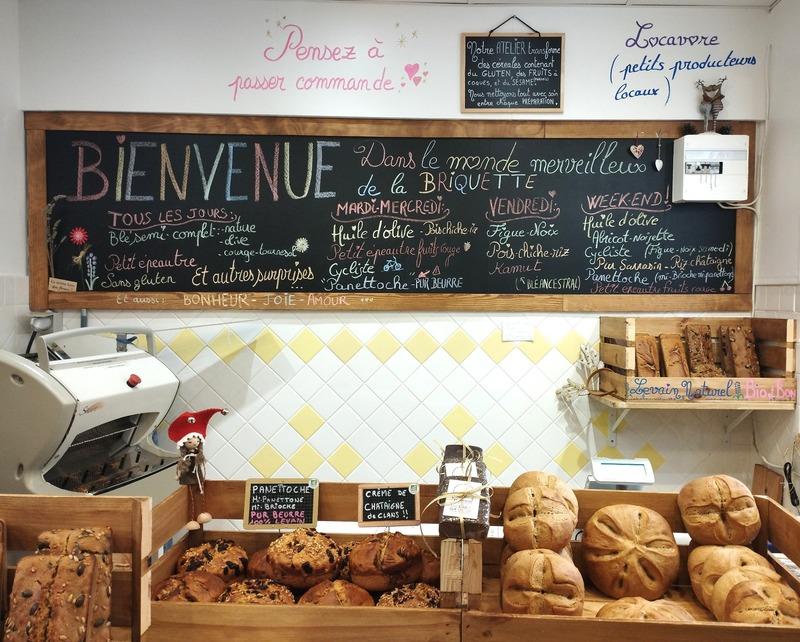 Pensez à
passer commande
Notre ATELIER transforme
des céréales contenant
du GLUTEN, des FRUITS à
coques, et du SÉSAME.
Nous nettoyons tout avec soin
entre chaque PRÉPARATION.
Locavore
(petits producteurs
locaux)
BiENVENUE
Dans le monde merveilleux
de la BRiQUETTE
TOUS LES JOURS:
Blé semi-complet: -nature
-olive
-courge-tournesol
Petit épeautre
Sans gluten
Et autres surprises...
MARDI-MERCREDI:
Huile d'olive - Bischiche-riz
Petit épeautre fruits rouge
Cycliste
Panettoche - PUR BEURRE
VENDREDI:
Figue-Noix
Pois-chiche-riz
Kamut
(BLÉ ANCESTRAL)
WEEK-END!
Huile d'olive
Abricot-Noisette
Cycliste (Figue-Noix samedi)
Pur Sarrasin - Riz châtaigne
Panettoche (mi-Brioche mi-panettone)
Petit épeautre fruits rouge
Et aussi: BONHEUR - JOIE - AMOUR ...
Levain Naturel Bio & Bon
PANETTOCHE
Mi-PANETTONE
Mi-BRiOCHE
PUR BEURRE
100% LEVAIN
CRÈME DE
CHATAIGNE
de CLANS !!